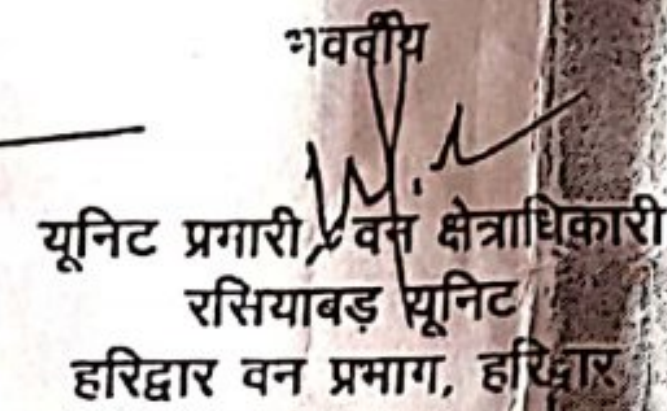 भवदीय
यूनिट प्रभारी/वन क्षेत्राधिकारी
रसियाबड़ यूनिट
हरिद्वार वन प्रभाग, हरिद्वार